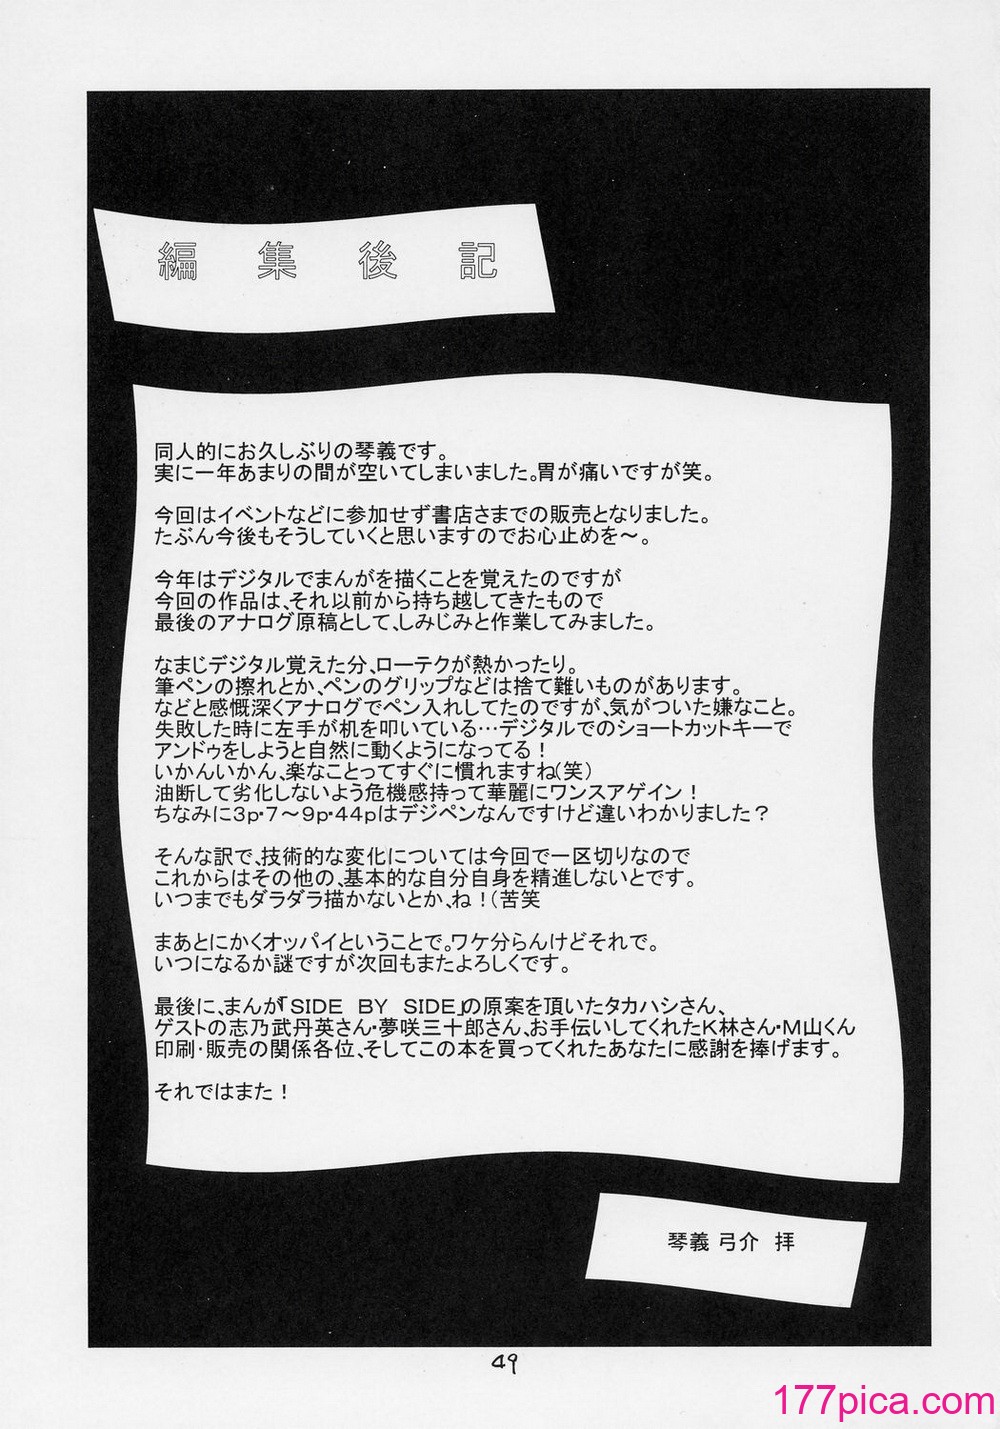 編集後記
同人的にお久しぶりの琴義です。
実に一年あまりの間が空いてしまいました。胃が痛いですが笑。
今回はイベントなどに参加せず書店さまでの販売となりました。
たぶん今後もそうしていくと思いますのでお心止めを～。
今年はデジタルでまんがを描くことを覚えたのですが
今回の作品は、それ以前から持ち越してきたもので
最後のアナログ原稿として、しみじみと作業してみました。
なまじデジタル覚えた分、ローテクが熱かったり。
筆ペンの擦れとか、ペンのグリップなどは捨て難いものがあります。
などと感慨深くアナログでペン入れしてたのですが、気がついた嫌なこと。
失敗した時に左手が机を叩いている…デジタルでのショートカットキーで
アンドゥをしようと自然に動くようになってる！
いかんいかん、楽なことってすぐに慣れますね（笑）
油断して劣化しないよう危機感持って華麗にワンスアゲイン！
ちなみに3p・7～9p・44pはデジペンなんですけど違いわかりました？
そんな訳で、技術的な変化については今回で一区切りなので
これからはその他の、基本的な自分自身を精進しないとです。
いつまでもダラダラ描かないとか、ね！（苦笑
まあとにかくオッパイということで。ワケ分らんけどそれで。
いつになるか謎ですが次回もまたよろしくです。
最後に、まんが「SIDE BY SIDE」の原案を頂いたタカハシさん、
ゲストの志乃武丹英さん・夢咲三十郎さん、お手伝いしてくれたK林さん・M山くん
印刷・販売の関係各位、そしてこの本を買ってくれたあなたに感謝を捧げます。
それではまた！
琴義 弓介 拝
49
177pica.com